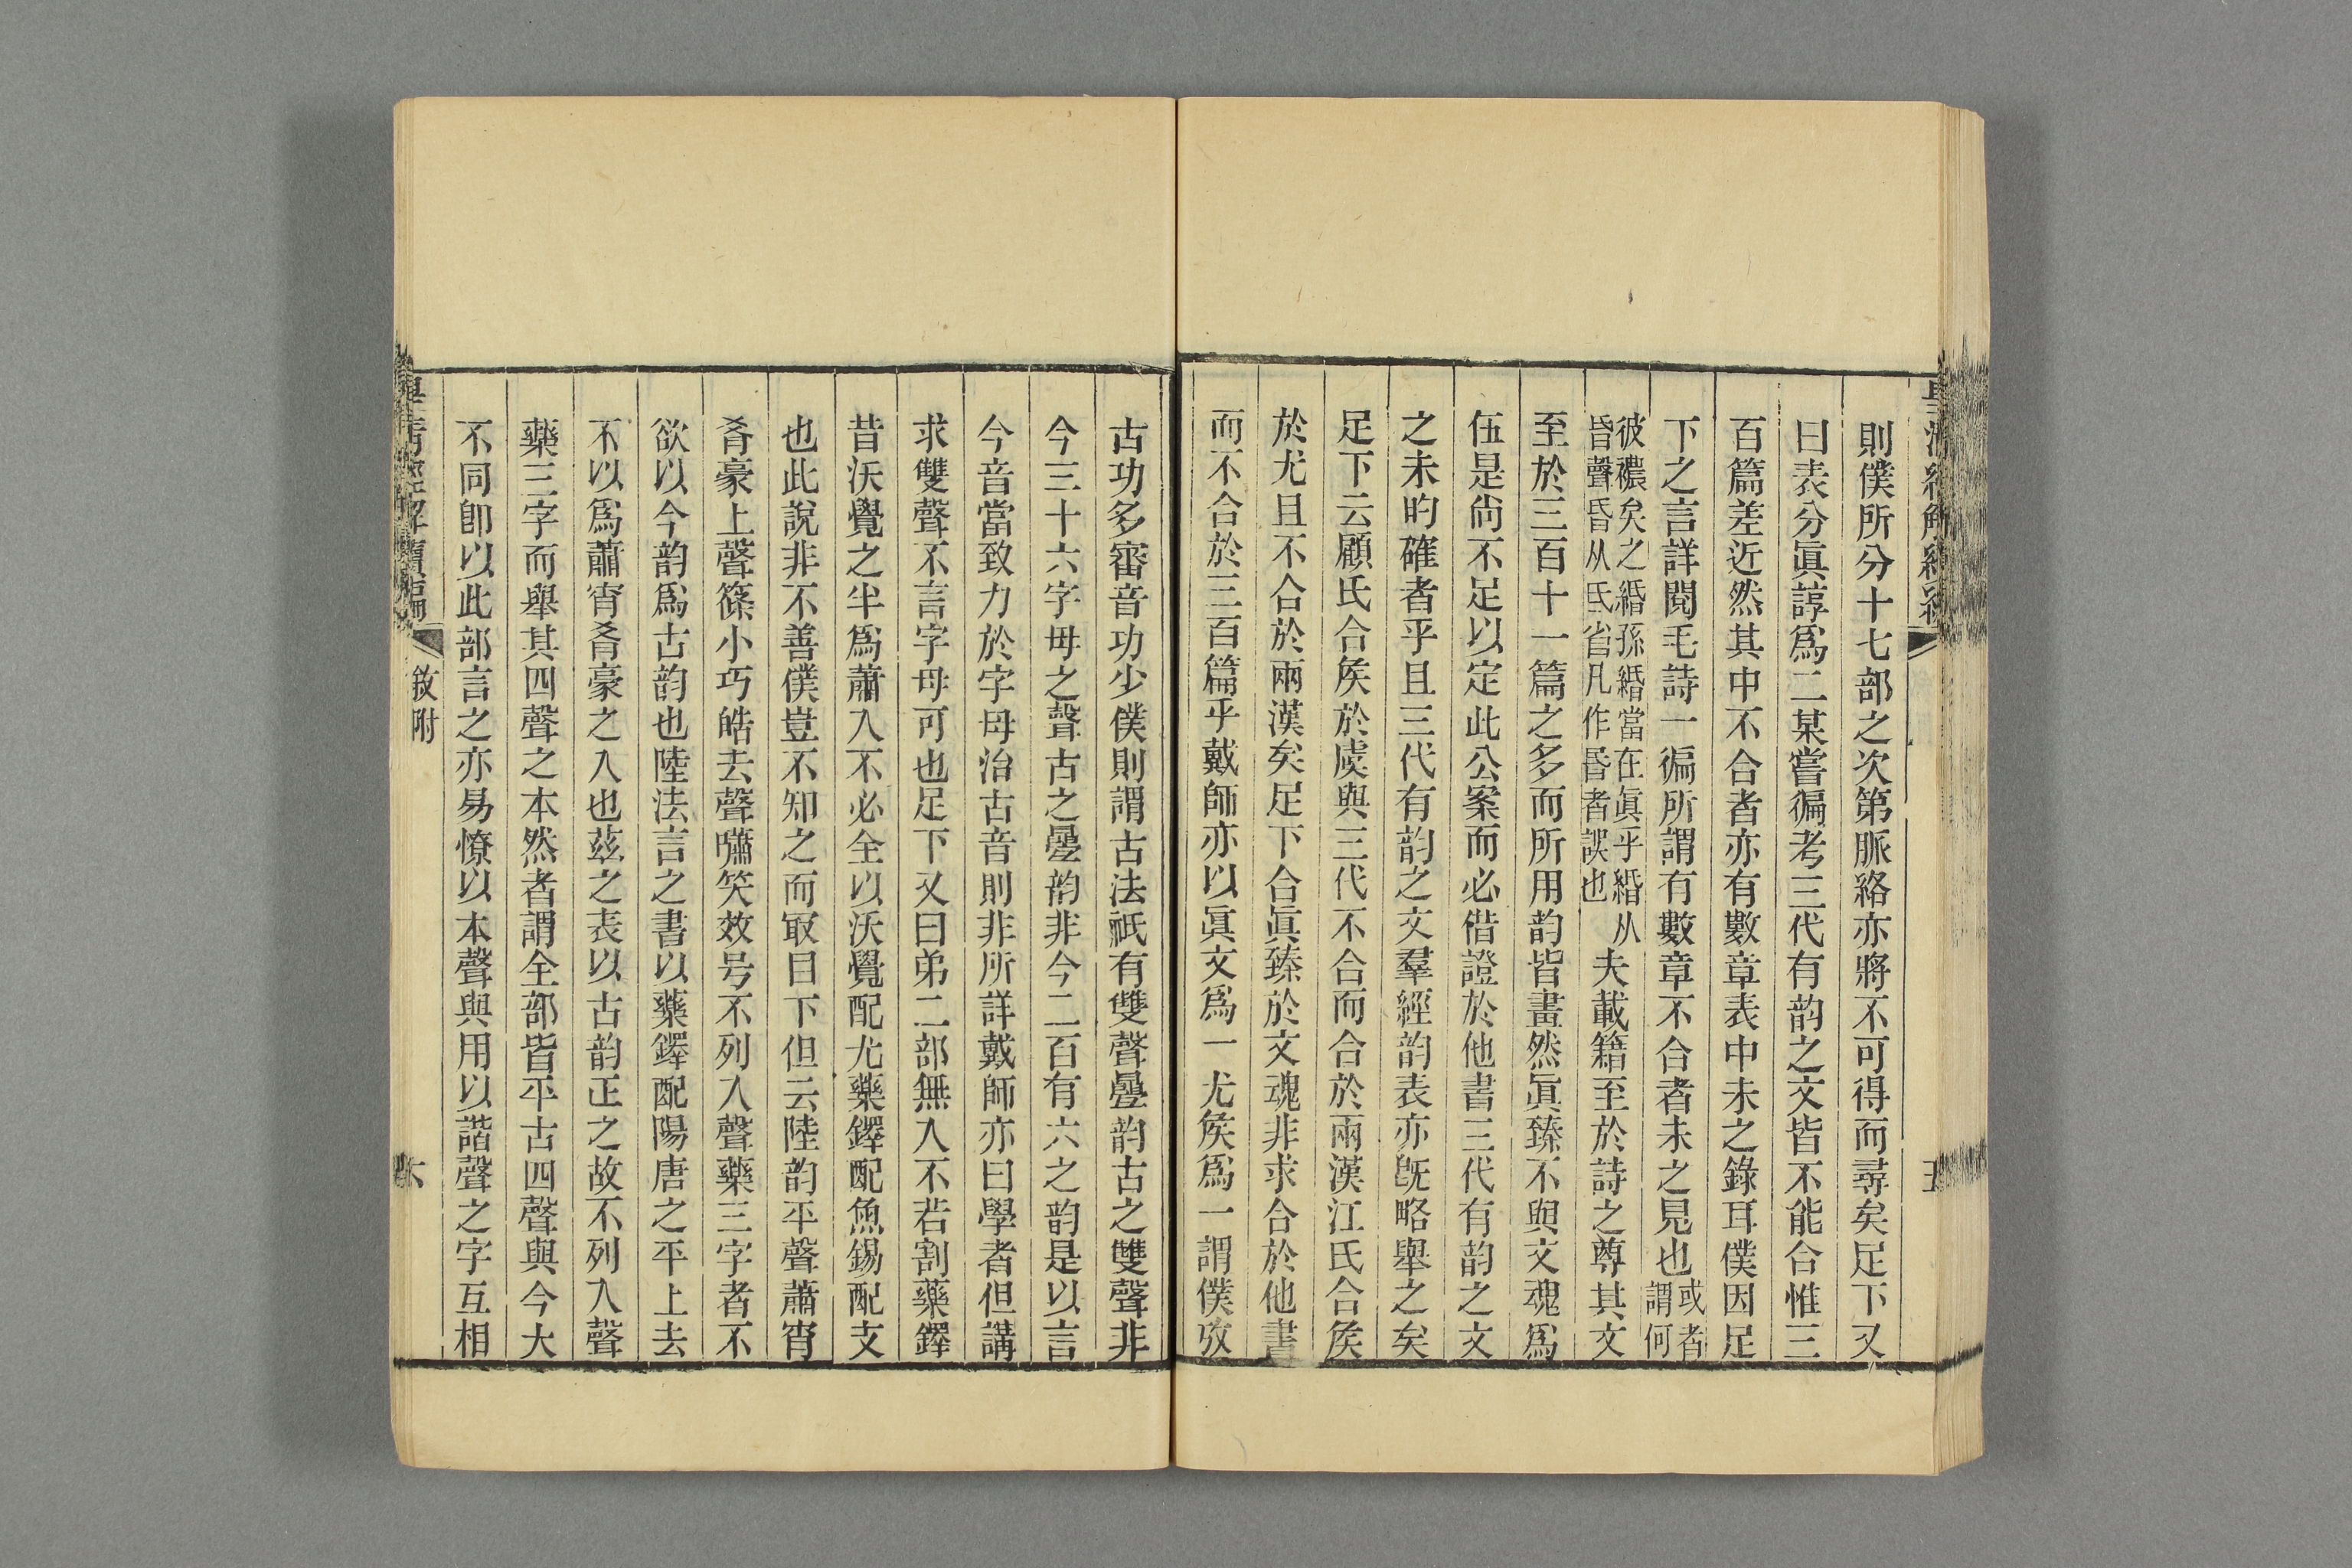 則僕所分十七部之次第脈絡亦將不可得而尋矣足下又
曰表分眞諄爲二某嘗徧考三代有韵之文皆不能合惟三
百篇差近然其中不合者亦有數章表中未之錄耳僕因足
下之言詳閱毛詩一徧所謂有數章不合者未之見也或者謂何
彼襛矣之緍孫緍當在眞乎緍从昏聲昏从氐省凡作昬者誤也夫載籍至於詩之尊其文
至於三百十一篇之多而所用韵皆畫然眞臻不與文魂爲
伍是尙不足以定此公案而必偕證於他書三代有韵之文
之未旳確者乎且三代有韵之文羣經韵表亦旣略舉之矣
足下云顧氏合矦於虞與三代不合而合於兩漢江氏合矦
於尤且不合於兩漢矣足下合眞臻於文魂非求合於他書
而不合於三百篇乎戴師亦以眞文爲一尤矦爲一謂僕攷
古功多審音功少僕則謂古法祇有雙聲曡韵古之雙聲非
今三十六字母之聲古之曡韵非今二百有六之韵是以言
今音當致力於字母治古音則非所詳戴師亦曰學者但講
求雙聲不言字母可也足下又曰弟二部無入不若割藥鐸
昔沃覺之半爲蕭入不必全以沃覺配尤藥鐸配魚錫配支
也此說非不善僕豈不知之而㝡目下但云陸韵平聲蕭宵
肴豪上聲篠小巧皓去聲嘯笑效号不列入聲藥三字者不
欲以今韵爲古韵也陸法言之書以藥鐸配陽唐之平上去
不以爲蕭宵肴豪之入也茲之表以古韵正之故不列入聲
藥三字而舉其四聲之本然者謂全部皆平古四聲與今大
不同卽以此部言之亦易憭以本聲與用以諧聲之字互相
皇淸經解續編
敘附
六